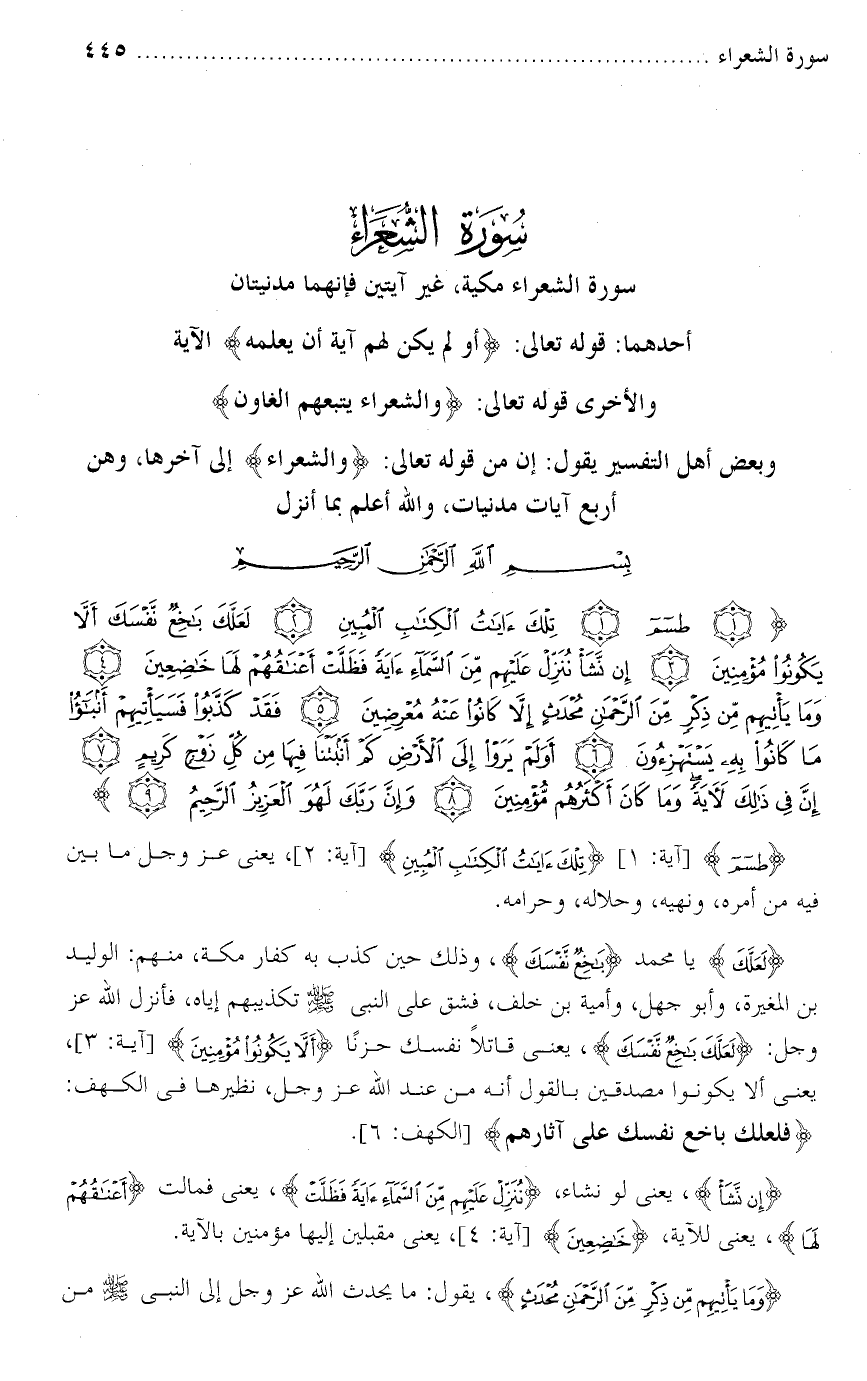 سورة الشعراء ........................................................................ ٤٤٥
سُورَةُ الشُّعَرَاءِ
سورة الشعراء مكية، غير آيتين فإنهما مدنيتان
أحدهما: قوله تعالى: ﴿أو لم يكن لهم آية أن يعلمه﴾ الآية
والأخرى قوله تعالى: ﴿والشعراء يتبعهم الغاون﴾
وبعض أهل التفسير يقول: إن من قوله تعالى: ﴿والشعراء﴾ إلى آخرها، وهن
أربع آيات مدنيات، والله أعلم بما أنزل
بِسْمِ ٱللَّهِ ٱلرَّحْمَٰنِ ٱلرَّحِيمِ
﴿ ١ طسٓمٓ ١ تِلْكَ ءَايَٰتُ ٱلْكِتَٰبِ ٱلْمُبِينِ ٢ لَعَلَّكَ بَٰخِعٌ نَّفْسَكَ أَلَّا
يَكُونُوا۟ مُؤْمِنِينَ ٣ إِن نَّشَأْ نُنَزِّلْ عَلَيْهِم مِّنَ ٱلسَّمَآءِ ءَايَةً فَظَلَّتْ أَعْنَٰقُهُمْ لَهَا خَٰضِعِينَ ٤
وَمَا يَأْتِيهِم مِّن ذِكْرٍ مِّنَ ٱلرَّحْمَٰنِ مُحْدَثٍ إِلَّا كَانُوا۟ عَنْهُ مُعْرِضِينَ ٥ فَقَدْ كَذَّبُوا۟ فَسَيَأْتِيهِمْ أَنۢبَٰٓؤُا۟
مَا كَانُوا۟ بِهِۦ يَسْتَهْزِءُونَ ٦ أَوَلَمْ يَرَوْا۟ إِلَى ٱلْأَرْضِ كَمْ أَنۢبَتْنَا فِيهَا مِن كُلِّ زَوْجٍ كَرِيمٍ ٧
إِنَّ فِى ذَٰلِكَ لَءَايَةً ۖ وَمَا كَانَ أَكْثَرُهُم مُّؤْمِنِينَ ٨ وَإِنَّ رَبَّكَ لَهُوَ ٱلْعَزِيزُ ٱلرَّحِيمُ ٩ ﴾
﴿طسٓمٓ﴾ [آية: ١] ﴿تِلْكَ ءَايَٰتُ ٱلْكِتَٰبِ ٱلْمُبِينِ﴾ [آية: ٢]، يعنى عز وجل ما بين
فيه من أمره، ونهيه، وحلاله، وحرامه.
﴿لَعَلَّكَ﴾ يا محمد ﴿بَٰخِعٌ نَّفْسَكَ﴾، وذلك حين كذب به كفار مكة، منهم: الوليد
بن المغيرة، وأبو جهل، وأمية بن خلف، فشق على النبى ﷺ تكذيبهم إياه، فأنزل الله عز
وجل: ﴿لَعَلَّكَ بَٰخِعٌ نَّفْسَكَ﴾، يعنى قاتلاً نفسك حزنًا ﴿أَلَّا يَكُونُوا۟ مُؤْمِنِينَ﴾ [آية: ٣]،
يعنى ألا يكونوا مصدقين بالقول أنه من عند الله عز وجل، نظيرها فى الكهف:
﴿فلعلك باخع نفسك على آثارهم﴾ [الكهف: ٦].
﴿إِن نَّشَأْ﴾، يعنى لو نشاء، ﴿نُنَزِّلْ عَلَيْهِم مِّنَ ٱلسَّمَآءِ ءَايَةً فَظَلَّتْ﴾، يعنى فمالت ﴿أَعْنَٰقُهُمْ
لَهَا﴾، يعنى للآية، ﴿خَٰضِعِينَ﴾ [آية: ٤]، يعنى مقبلين إليها مؤمنين بالآية.
﴿وَمَا يَأْتِيهِم مِّن ذِكْرٍ مِّنَ ٱلرَّحْمَٰنِ مُحْدَثٍ﴾، يقول: ما يحدث الله عز وجل إلى النبى ﷺ من